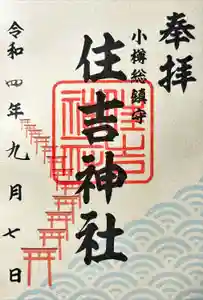 奉拝
小樽総鎮守
住吉神社
令和四年九月七日
住吉
神社